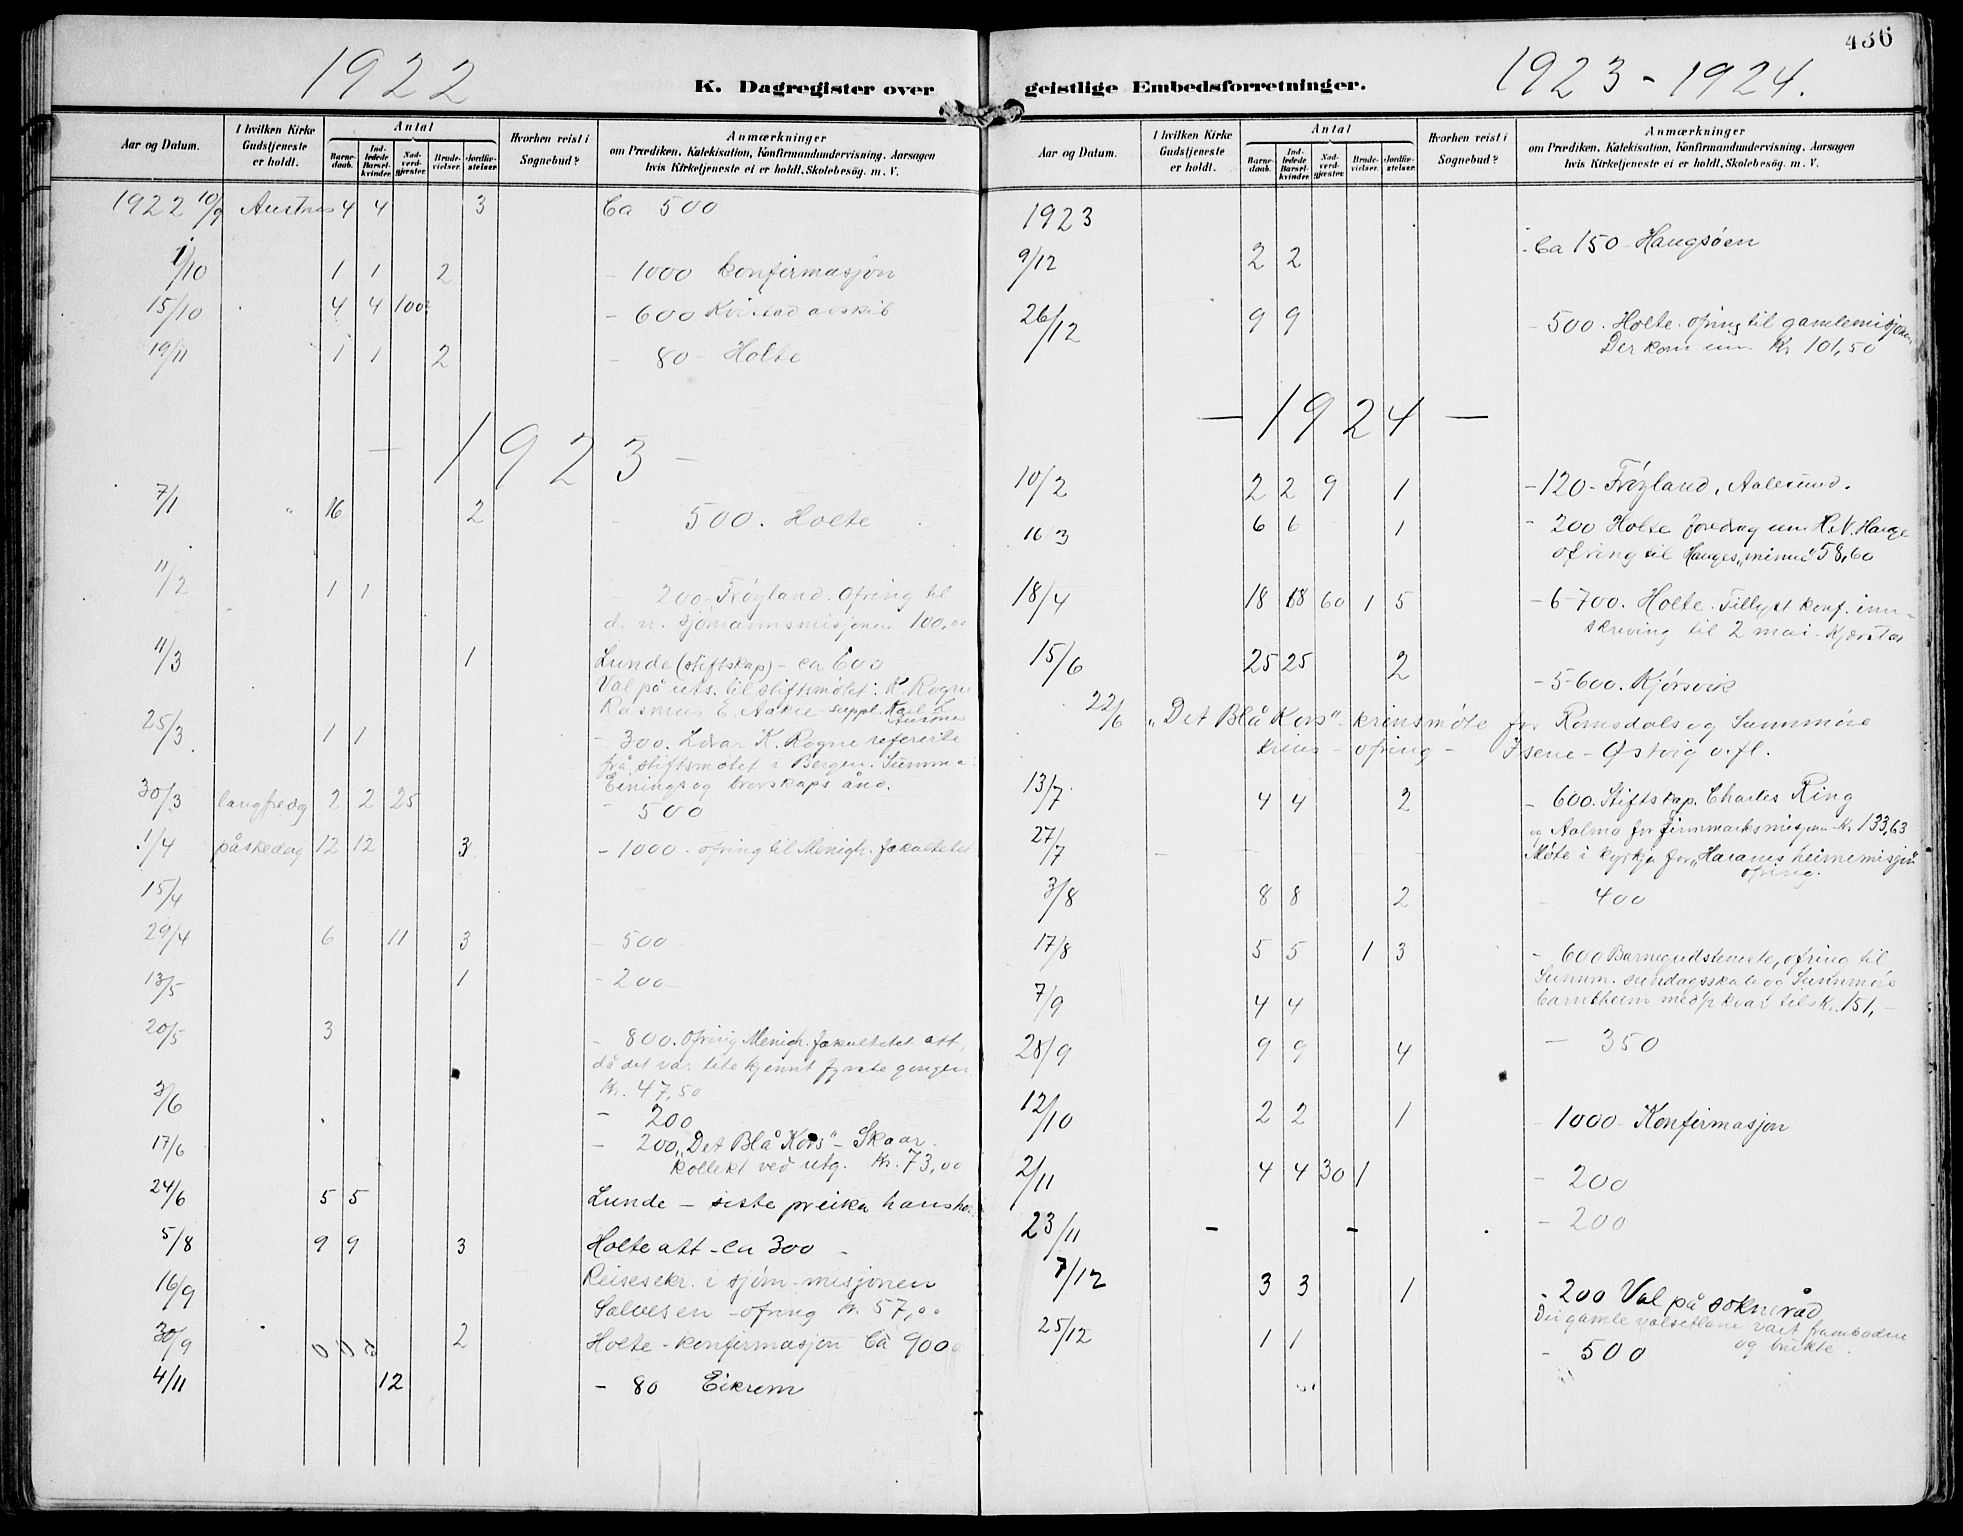 1922
K. Dagregister over
Aar og Datum.
I hvilken Kirke Gudstjeneste er holdt.
Antal
Barne-daab.
Ind-ledede Barsel-kvinder.
Nad-verd-gjester.
Brude-vielser.
Jordfæ-stelser.
Hvorhen reist i Sognebud?
Anmærkninger
om Prædiken, Katekisation, Konfirmandundervisning, Aarsagen
hvis Kirketjeneste ei er holdt, Skolebesøg. m. V.
1922 10/9 Austnes 4 4 3 Ca 500
1/10 1 1 2 - 1000 Konfirmasjon
15/10 4 4 100 - 600 Kvistad avskib
19/11 1 1 2 - 80 - Holte
- 1923 -
7/1 " 16 2 500. Holte
11/2 1 1 - 200 - Frøyland. Ofring til
d. n. sjømannsmisjonen 100,00
11/3 1 Lunde (stiftskap) - ca 600
Val på uts. til stiftsmøtet: K. Rogne
Rasmus E. suppl. Karl L.
Austnes
25/3 1 1 - 300. K. Rogne refererte
frå stiftsmøtet i Bergen. Summa:
Einings og brorskaps ånd.
30/3 langfredag 2 2 25 - 500
1/4 påskedag 12 12 3 - 1000 - ofring til Menigh. fakultetet
15/4
29/4 6 11 3 - 500
13/5 1 - 200
20/5 3 - 800. Ofring Menigh. fakultetet att,
då det var lite kjennt fyrste gongen
Kr. 47,50
3/6 - 200
17/6 - 200 „Det Blå Kors" - Skaar.
Kollekt ved utg. Kr. 73,00
24/6 5 5 Lunde - siste preika hans her.
5/8 9 9 3 Holte att - ca 300 -
16/9 Reisesekr. i sjøm-misjonen
Salvesen - ofring kr. 57,00
30/9 0 0 2 Holte - konfirmasjon Ca 900
4/11 12 - 80 Eikrem
436
1923 - 1924.
geistlige Embedsforretninger.
Aar og Datum.
I hvilken Kirke Gudstjeneste er holdt.
Antal
Barne-daab.
Ind-ledede Barsel-kvinder.
Nad-verd-gjester.
Brude-vielser.
Jordfæ-stelser.
Hvorhen reist i Sognebud?
Anmærkninger
om Prædiken, Katekisation, Konfirmandundervisning, Aarsagen
hvis Kirketjeneste ei er holdt, Skolebesøg. m. V.
1923
9/12 2 2 Ca 150 - Haugsøen
26/12 9 9 - 500. Holte. ofring til gamlemisjonen
Der kom inn Kr 101,50
- 1924 -
10/2 2 2 9 1 - 120 - Frøyland, Aalesund.
16 3 6 6 1 - 200 Holte foredrag um H. N. Hauge
ofring til Hauges „minne" 58,60
18/4 18 18 60 1 5 - 6-700. Holte. Tillyst konf. inn-
skriving til 2 mai - Kjærstad
15/6 25 25 2 - 5-600. Kjørsvik
22/6 „Det Blå Kors" - krinsmøte for Romsdals og Sunnmøre
krins - ofring - Isene - Østvig o.fl.
13/7 4 4 2 - 600. Stiftskap. Charles Ring
og Aalmo for Finnmarksmisjonen Kr. 133,63
27/7 - - - - - Møte i kyrkja for „Harams heimemisjon"
ofring.
3/8 8 8 2 - 400
17/8 5 5 1 3 - 600 Barnegudsteneste, ofring til
Sunnm. sundagsskule og Sunnmøre
barneheim medp kvar tels Kr. 151,-
7/9 4 4
28/9 9 9 4 - 350
12/10 2 2 1 - 1000 - Konfirmasjon
2/11 4 4 30 1 - 200
23/11 - - - 200
7/12 3 3 1 - 200 Val på sokneråd
Dei gamle valsetlane vart frambodne
og brukte.
25/12 1 1 - 500